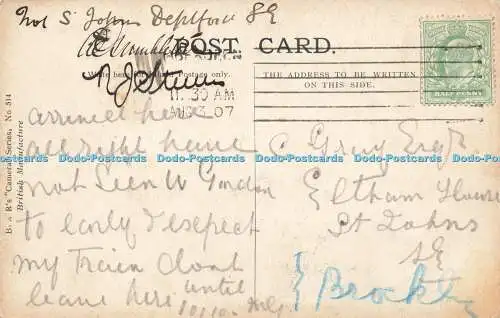 Not S Johns Deptford SE
POST CARD.
Write here for Inland Postage only.
THE ADDRESS TO BE WRITTEN
ON THIS SIDE.
HALFPENNY
11.30 AM
AUG 07
B. & R's "Camera" Series, No. 514
British Manufacture
arrived here
all right have
not Seen W Gordon
to early I expect
my Train dont
leave here until
10/10
C Grey Esqr
Eltham House
St Johns
SE
Brockley
Dodo-Postcards Dodo-Postcards Dodo-Postcards Dodo-Postcards Dodo-Postcards